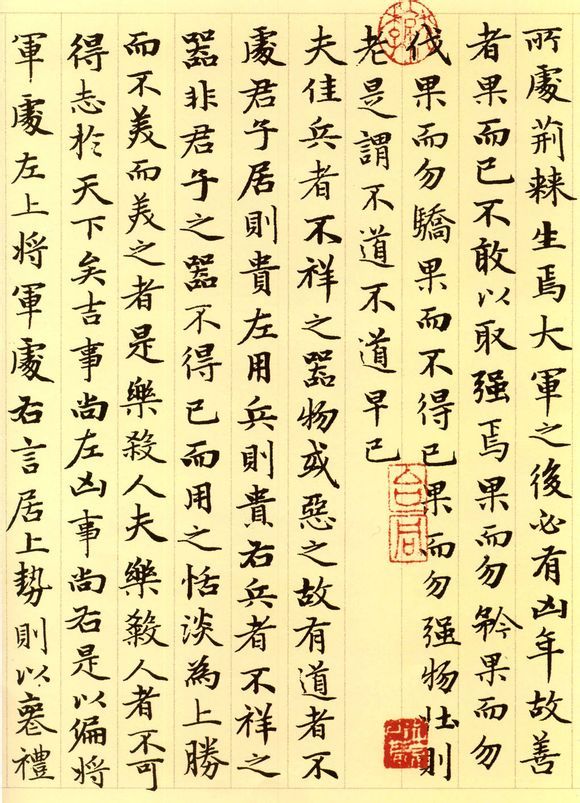 所處荆棘生焉大軍之後必有凶年故善
者果而已不敢以取强焉果而勿矜果而勿
伐果而勿驕果而不得已果而勿强物壮則
老是謂不道不道早已
夫佳兵者不祥之器物或惡之故有道者不
處君子居則貴左用兵則貴右兵者不祥之
器非君子之器不得已而用之恬淡為上勝
而不美而美之者是樂殺人夫樂殺人者不可
得志於天下矣吉事尚左凶事尚右是以偏將
軍處左上將軍處右言居上勢則以喪禮